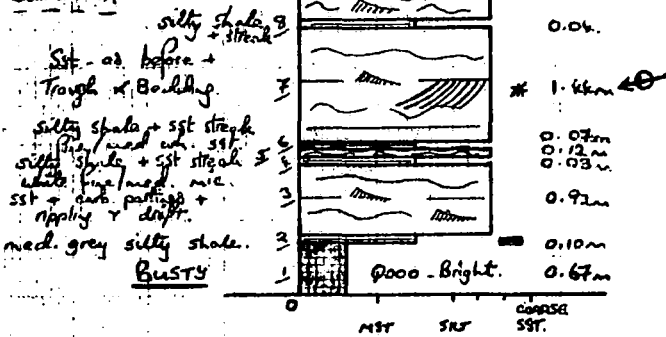 silty shale 8 0.04
+ streak
Sst - as before +
Trough x Bedding. 7 * 1.44m
silty shale + sst streak 6 0.07m
fine/med sst. 5 0.12m
silty shale + sst streak 4 0.03
white fine/med. mic.
sst + carb partings + 3 0.92m
rippling & drift.
med. grey silty shale. 2 0.10m
BUSTY 1 Q000 - Bright. 0.67m
0
MST SST COARSE
SST.